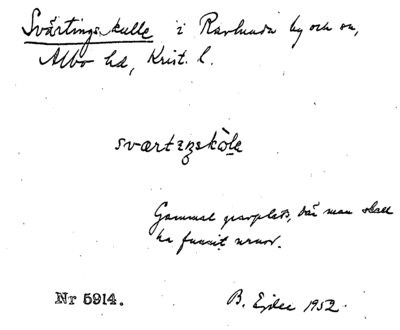 Svärtings kulle i Ravlunda by och sn,
Albo hd, Krist. l.
sværtɪŋskòlə
Gammal gravplats, där man skall
ha funnit urnor.
Nr 5914. B. Ejder 1952.